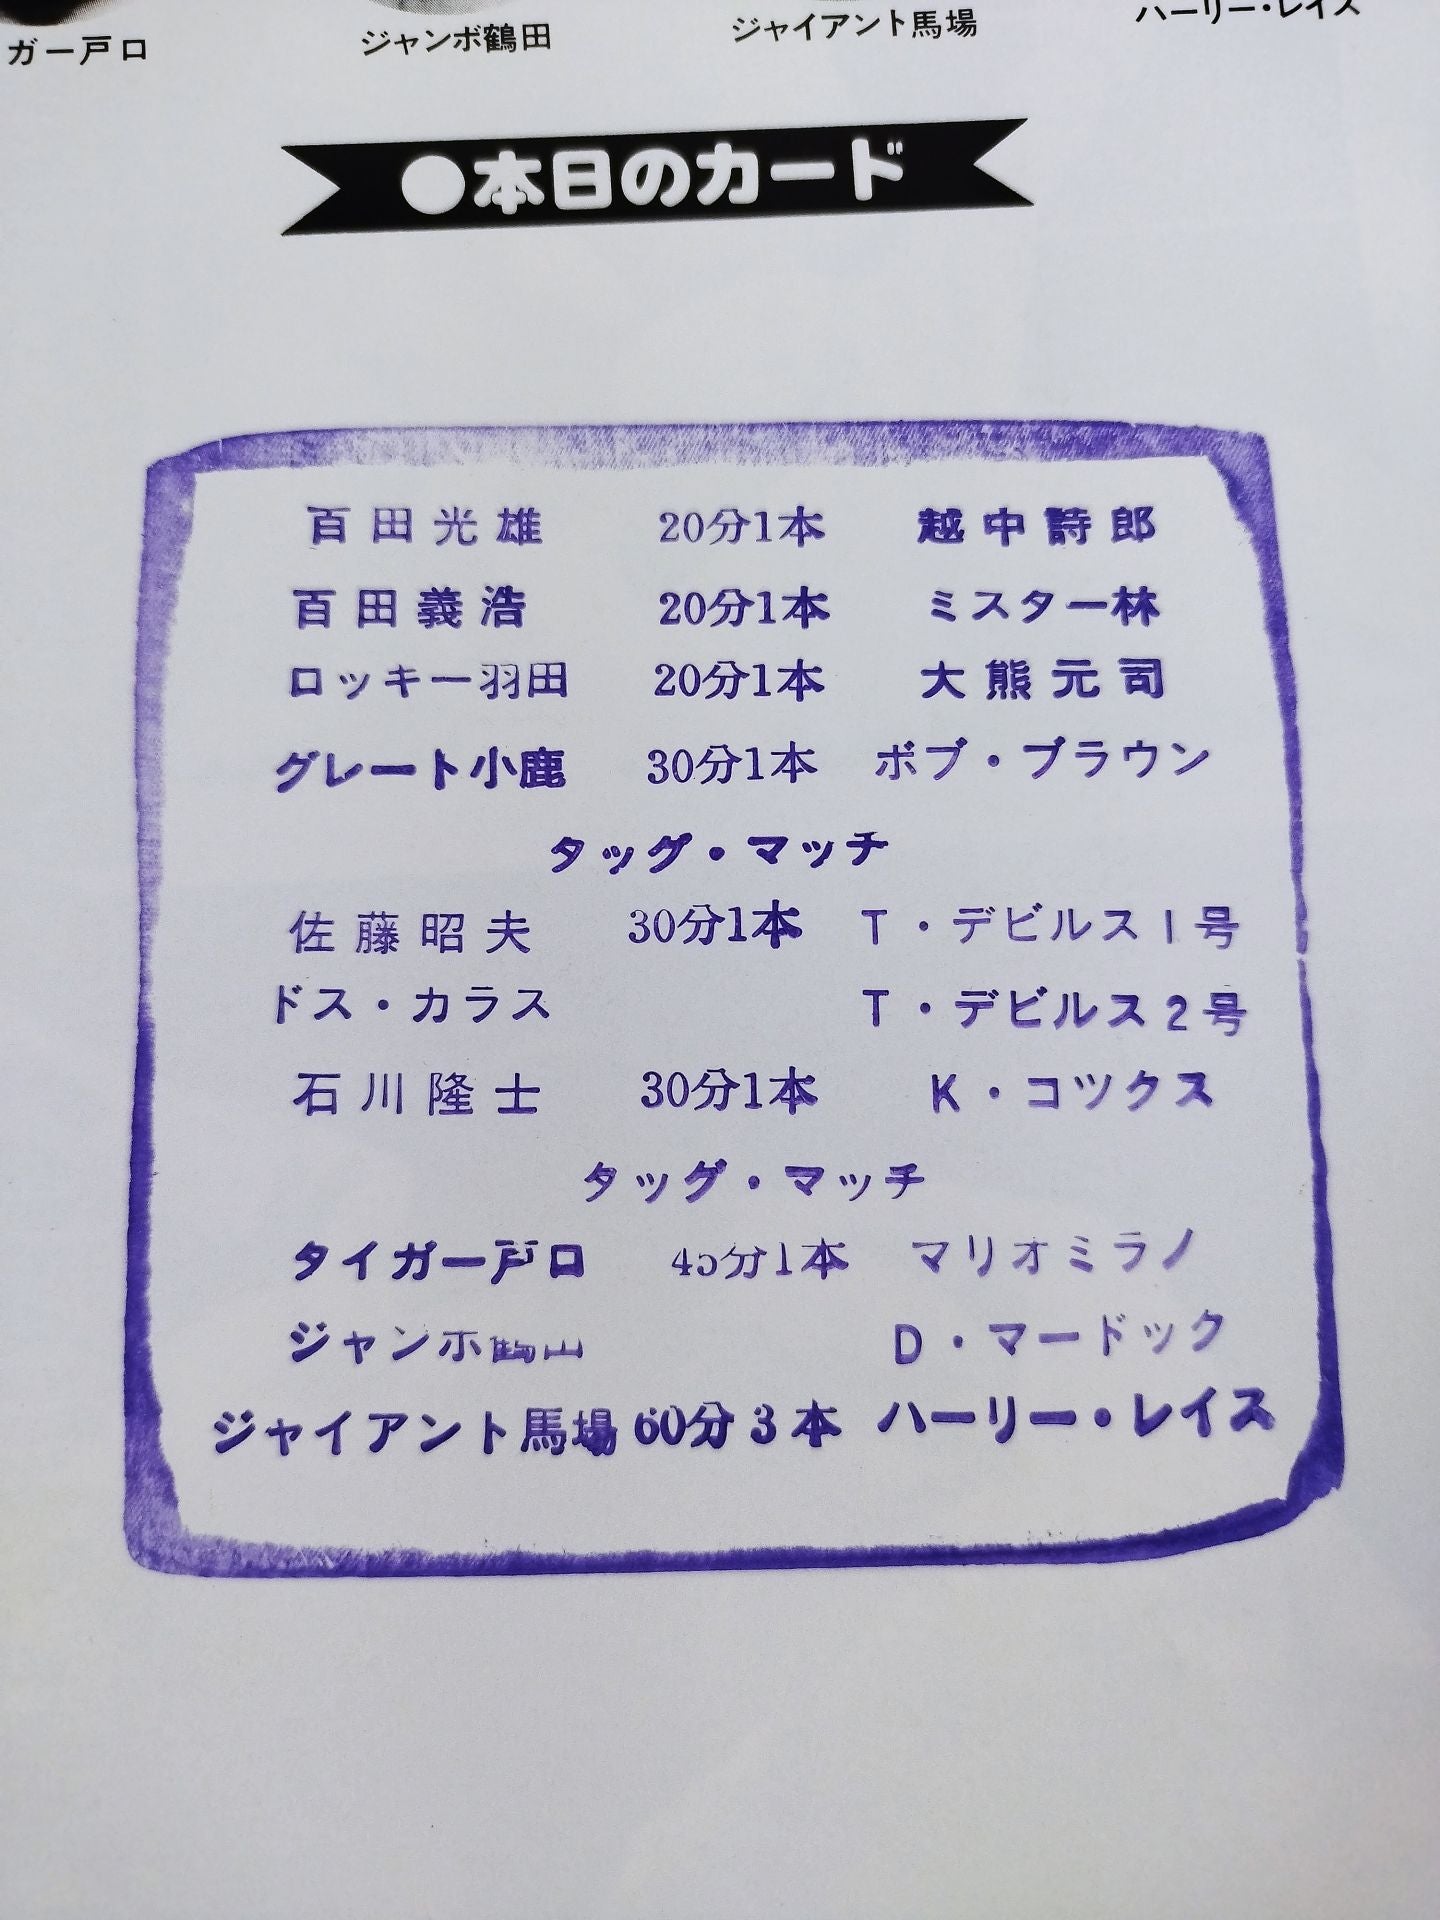 ガー戸口 ジャンボ鶴田 ジャイアント馬場 ハーリー・レイス
●本日のカード
百田光雄 20分1本 越中詩郎
百田義浩 20分1本 ミスター林
ロッキー羽田 20分1本 大熊元司
グレート小鹿 30分1本 ボブ・ブラウン
タッグ・マッチ
佐藤昭夫 30分1本 T・デビルス1号
ドス・カラス T・デビルス2号
石川隆士 30分1本 K・コツクス
タッグ・マッチ
タイガー戸口 45分1本 マリオミラノ
ジャンボ鶴田 D・マードック
ジャイアント馬場 60分3本 ハーリー・レイス